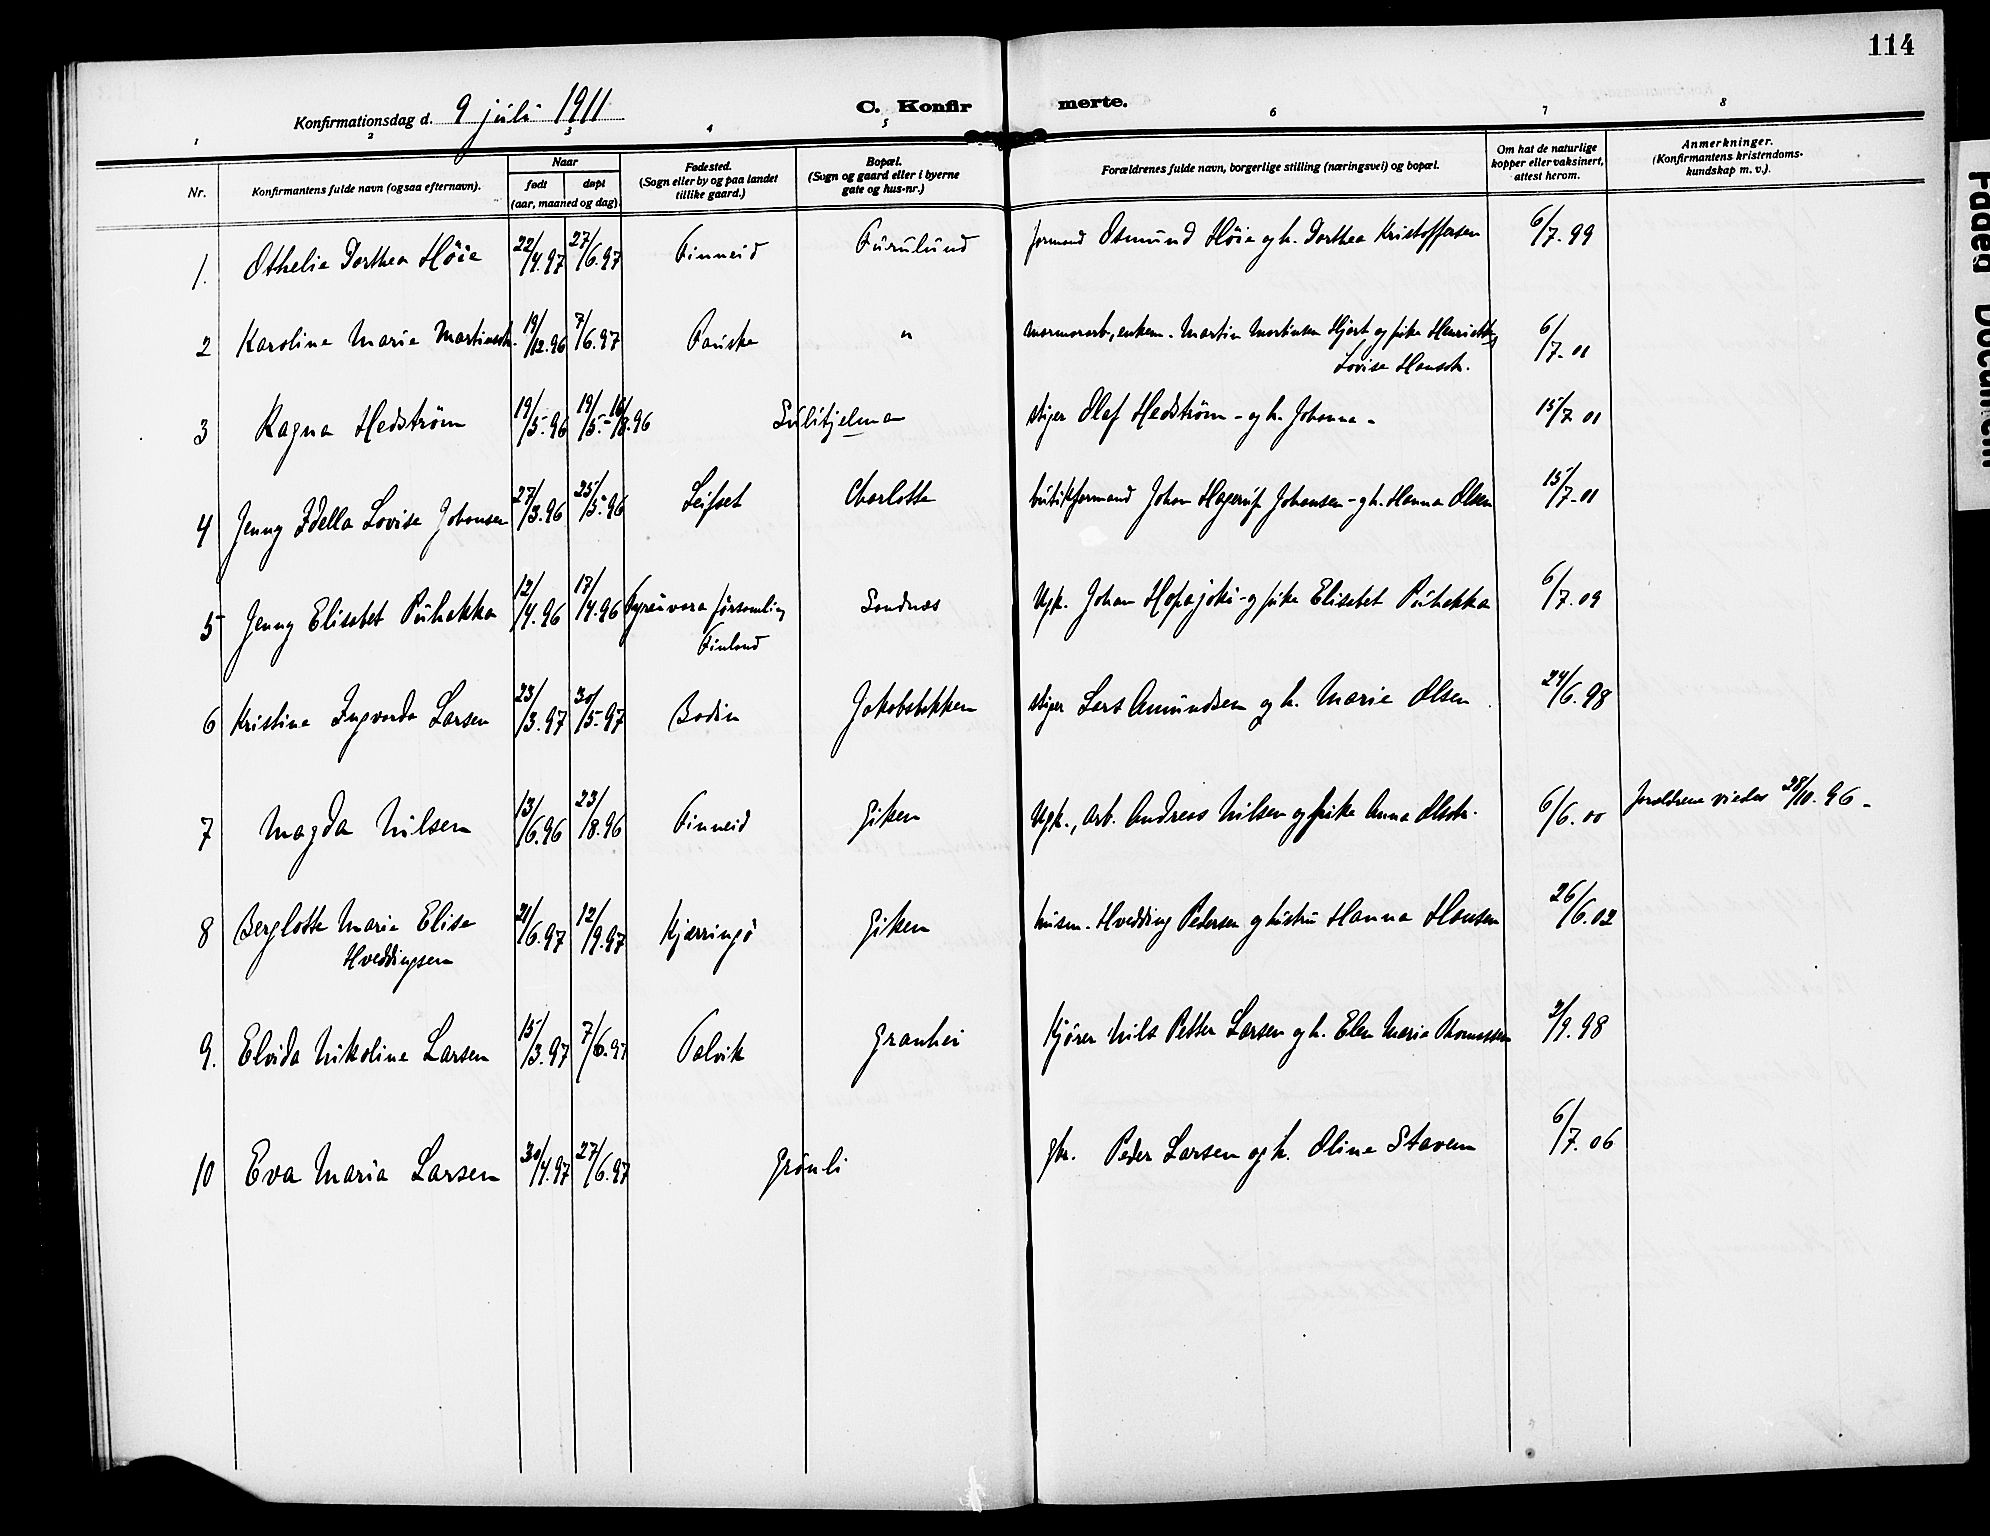 114
Konfirmationsdag d. 9 juli 1911
C. Konfir merte.
1 2 3 4 5 6 7 8
Nr. Konfirmantens fulde navn (ogsaa efternavn). Naar født døpt (aar, maaned og dag). Fødested. (Sogn eller by og paa landet tillike gaard.) Bopæl. (Sogn og gaard eller i byerne gate og hus-nr.) Forældrenes fulde navn, borgerlige stilling (næringsvei) og bopæl. Om hat de naturlige kopper eller vaksinert, attest herom. Anmerkninger. (Konfirmantens kristendoms-kundskap m. v.).
1. Othelie Dorthea Höie 22/4.97 27/6.97 Finneid Furulund formand Osmund Höie og h. Dorthea Kristoffersen 6/7.99
2 Karoline Marie Martinsdtr. 19/12.96 7/6.97 Fauske " marmorarb., enkem. Martin Martinsen Hjort og pike Henriette
Lovise Hansdtr. 6/7.01
3 Ragna Hedström 19/5.96 19/5.-16/8.96 Sulitjelma stiger Olaf Hedström - og h. Johanna - 15/7 01
4 Jenny Idella Lovise Johansen 27/3.96 25/5.96 Leifset Charlotta butikformand Johan Hagerup Johansen - og h. Hanna Olsen 15/7-01
5 Jenny Elisabet Puhakka 12/4.96 13/4.96 försomling Sandnes Ugk. Johan Hopajoki - og pike Elisabet Puhakka 6/7.09
Finland
6 Kristine Ingvarda Larsen 23/3.97 30/5-97 Bodin Jakobsbakken stiger Lars Amundsen og h. Marie Olsen 24/6.98
7 Magda Nilsen 13/6.96 23/8.96 Finneid Giken Ugk., arb. Andreas Nilsen og pike Anna Olsdtr. 6/6.00 forældrene viedes 28/10.96 -
8 Berglotte Marie Elise 21/6.97 12/9.97 Kjærringö Giken husm. Hvedding Pedersen og hustru Hanna Hansen 26/6.02
Hveddingsen
9. Elvida Nikoline Larsen 15/3.97 7/6.97 Talvik Granhei kjörer Nils Petter Larsen og h. Elen Marie Thomassen 2/9.98
10 Eva Maria Larsen 30/4.97 27/6.97 Grönli gbr. Peder Larsen og h. Oline Staven 6/7.06
Faded Document